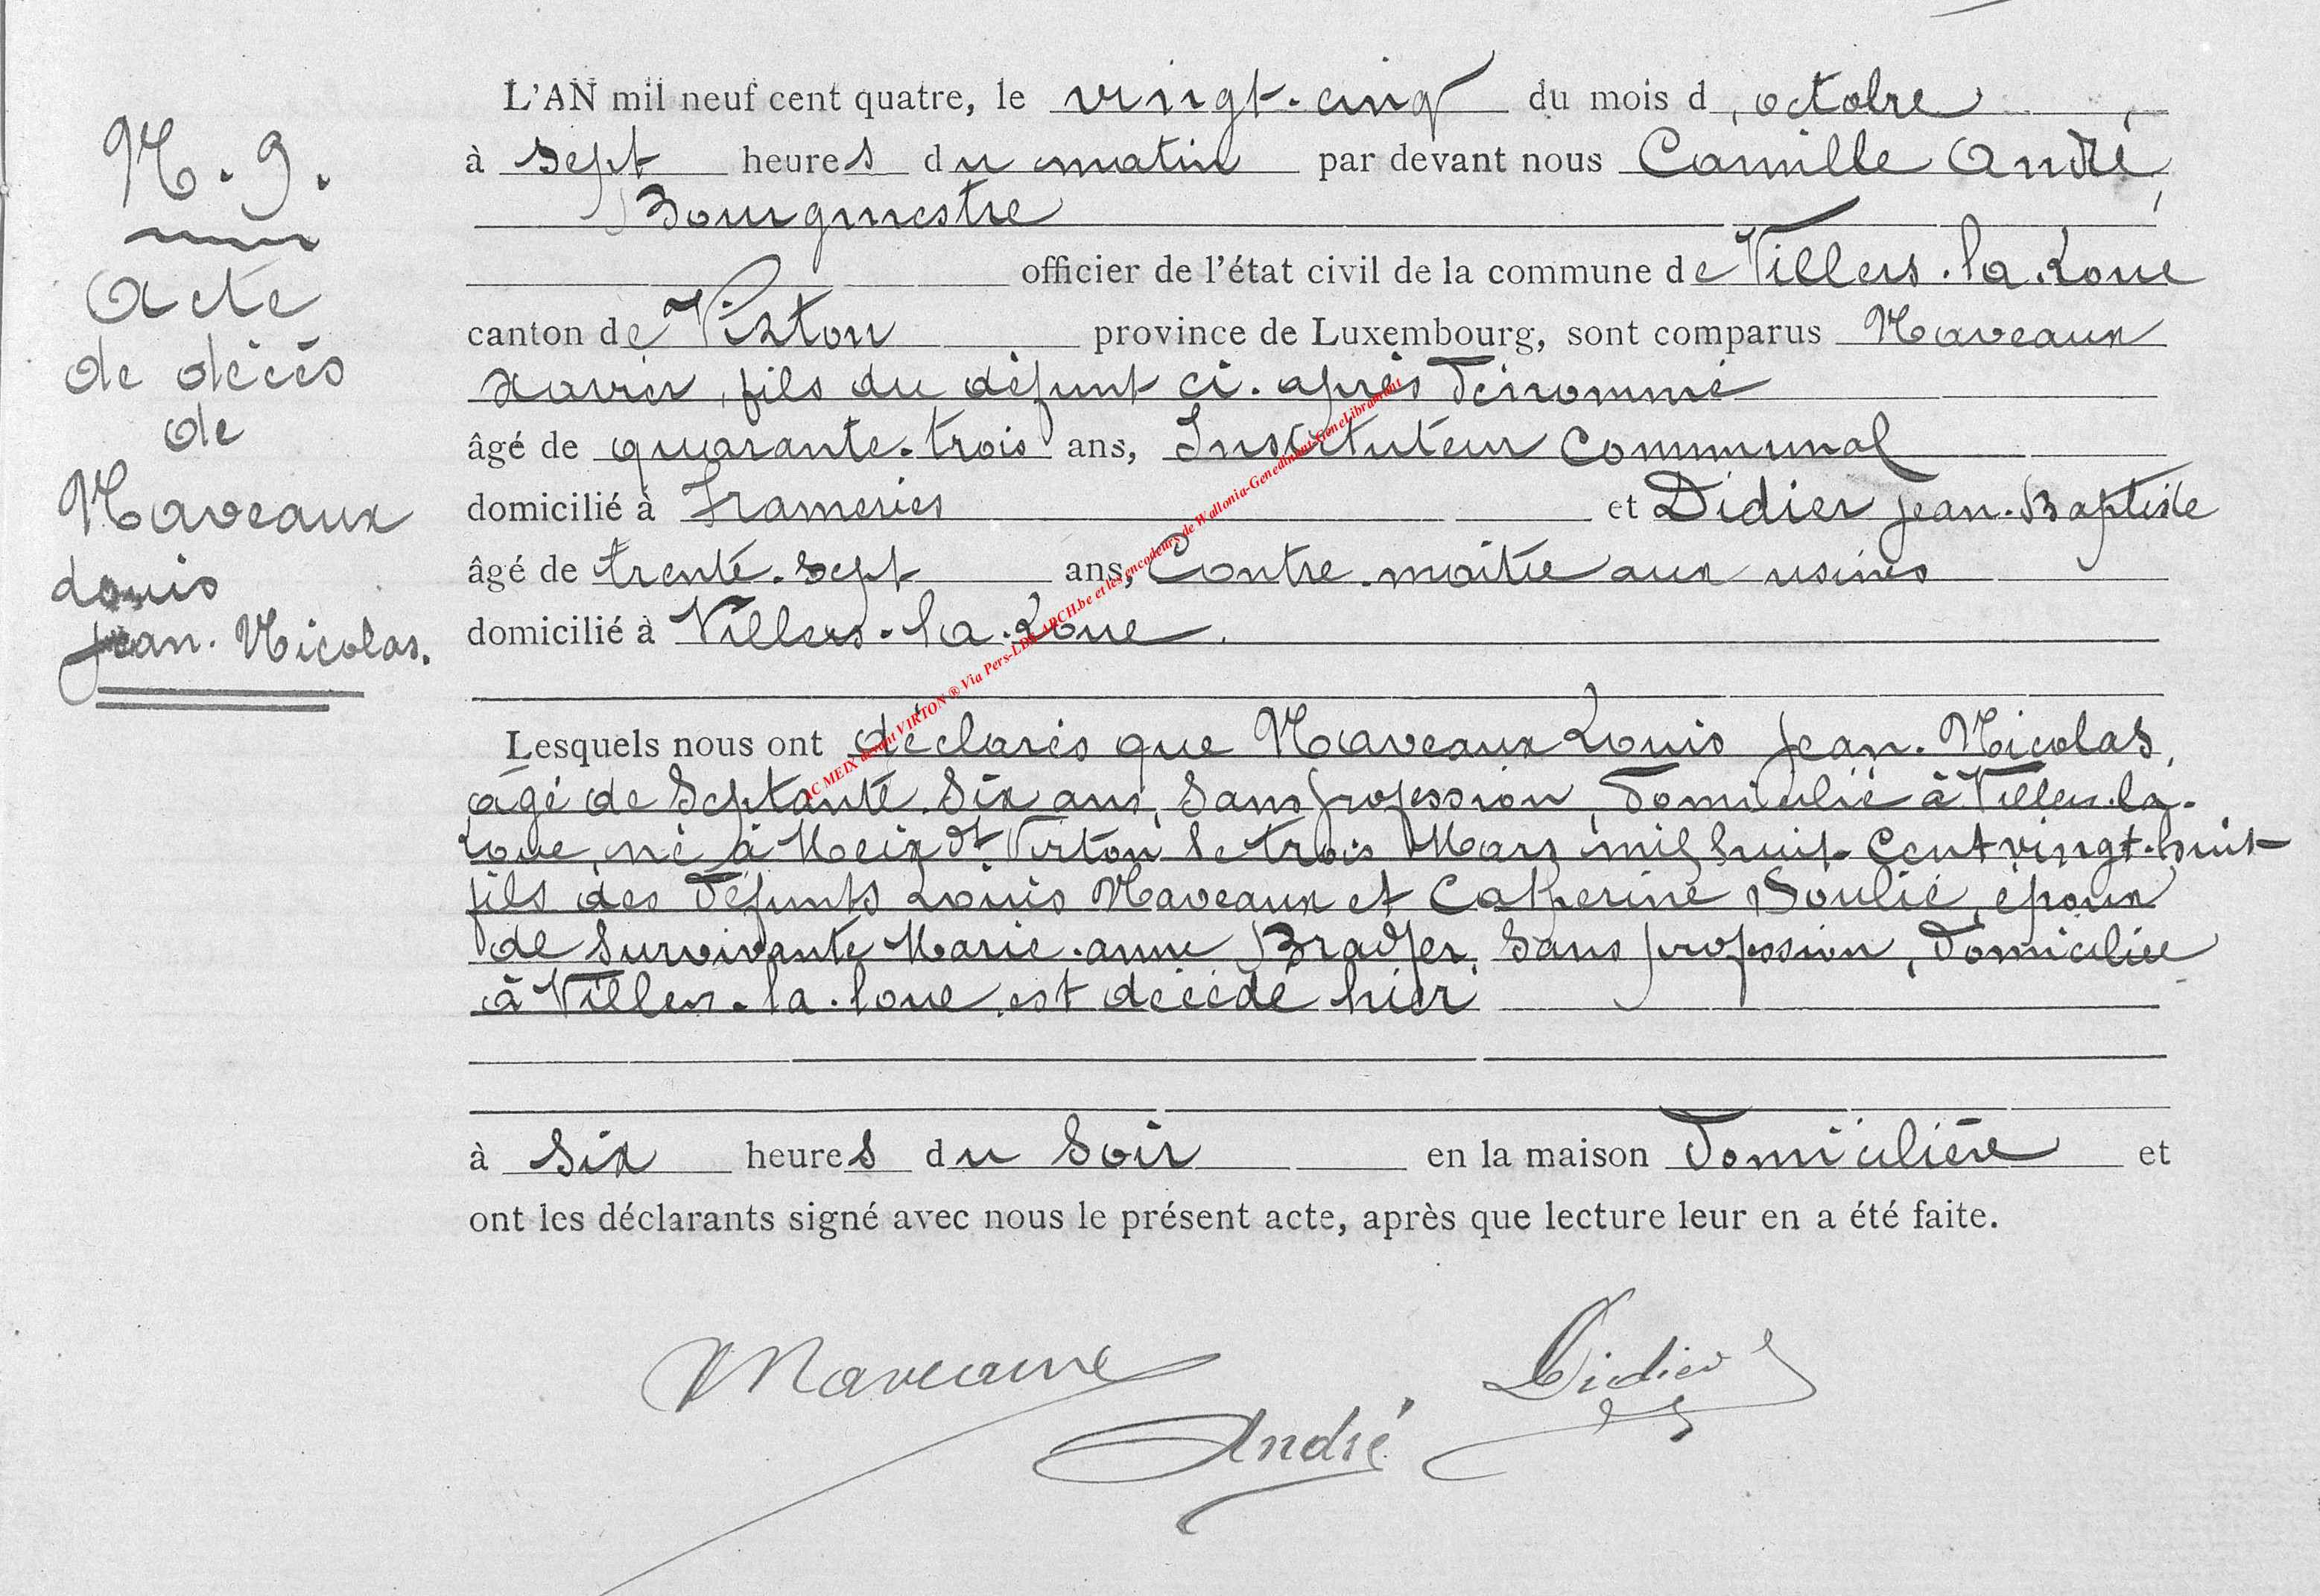 N. 9.
Acte
de décès
de
Naveaux
Louis
Jean. Nicolas.
L'AN mil neuf cent quatre, le vingt-cinq du mois d'octobre,
à sept heures du matin par devant nous Camille André,
Bourgmestre
officier de l'état civil de la commune de Villers-la-Loue
canton de Virton province de Luxembourg, sont comparus Naveaux
Xavier, fils du défunt ci-après dénommé
âgé de quarante-trois ans, Instituteur communal
domicilié à Frameries et Didier Jean-Baptiste
âgé de trente-sept ans, Contre-maître aux usines
domicilié à Villers-la-Loue.
Lesquels nous ont déclarés que Naveaux Louis Jean-Nicolas,
âgé de septante-six ans, sans profession, domicilié à Villers-la-
Loue, né à Meix dt Virton le trois Mars mil huit cent vingt-huit
fils des défunts Louis Naveaux et Catherine Soulié, époux
de survivante Marie-anne Bradfer, sans profession, domiciliée
à Villers-la-loue, est décédé hier
à six heures du soir en la maison domicilière et
ont les déclarants signé avec nous le présent acte, après que lecture leur en a été faite.
Naveaux
Didier
André
AC MEIX devant VIRTON ® Via Pers-LDS-ARCH.be et les encodeurs de Wallonia-Genedinant-GeneLibramont